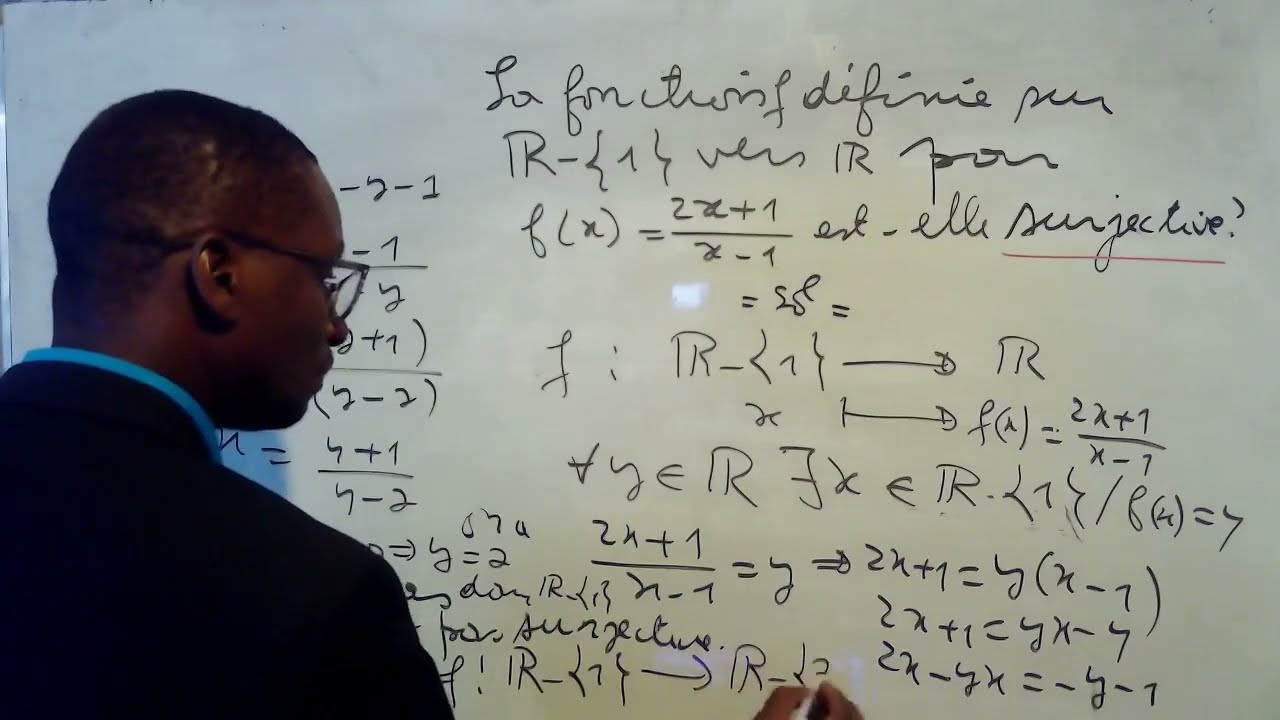 La fonction f définie sur
ℝ-{1} vers ℝ par
f(x) = (2x+1)/(x-1) est-elle surjective?
= Sol =
f : ℝ-{1} → ℝ
x ↦ f(x) = (2x+1)/(x-1)
∀ y ∈ ℝ ∃ x ∈ ℝ-{1} / f(x) = y
(2x+1)/(x-1) = y ⇒ 2x+1 = y(x-1)
2x+1 = yx-y
2x-yx = -y-1
-y-1
-1
y
+1)
(y-2)
x = (y+1)/(y-2)
⇒ y=2
ℝ-{1}
pas surjective.
f : ℝ-{1} → ℝ-{2